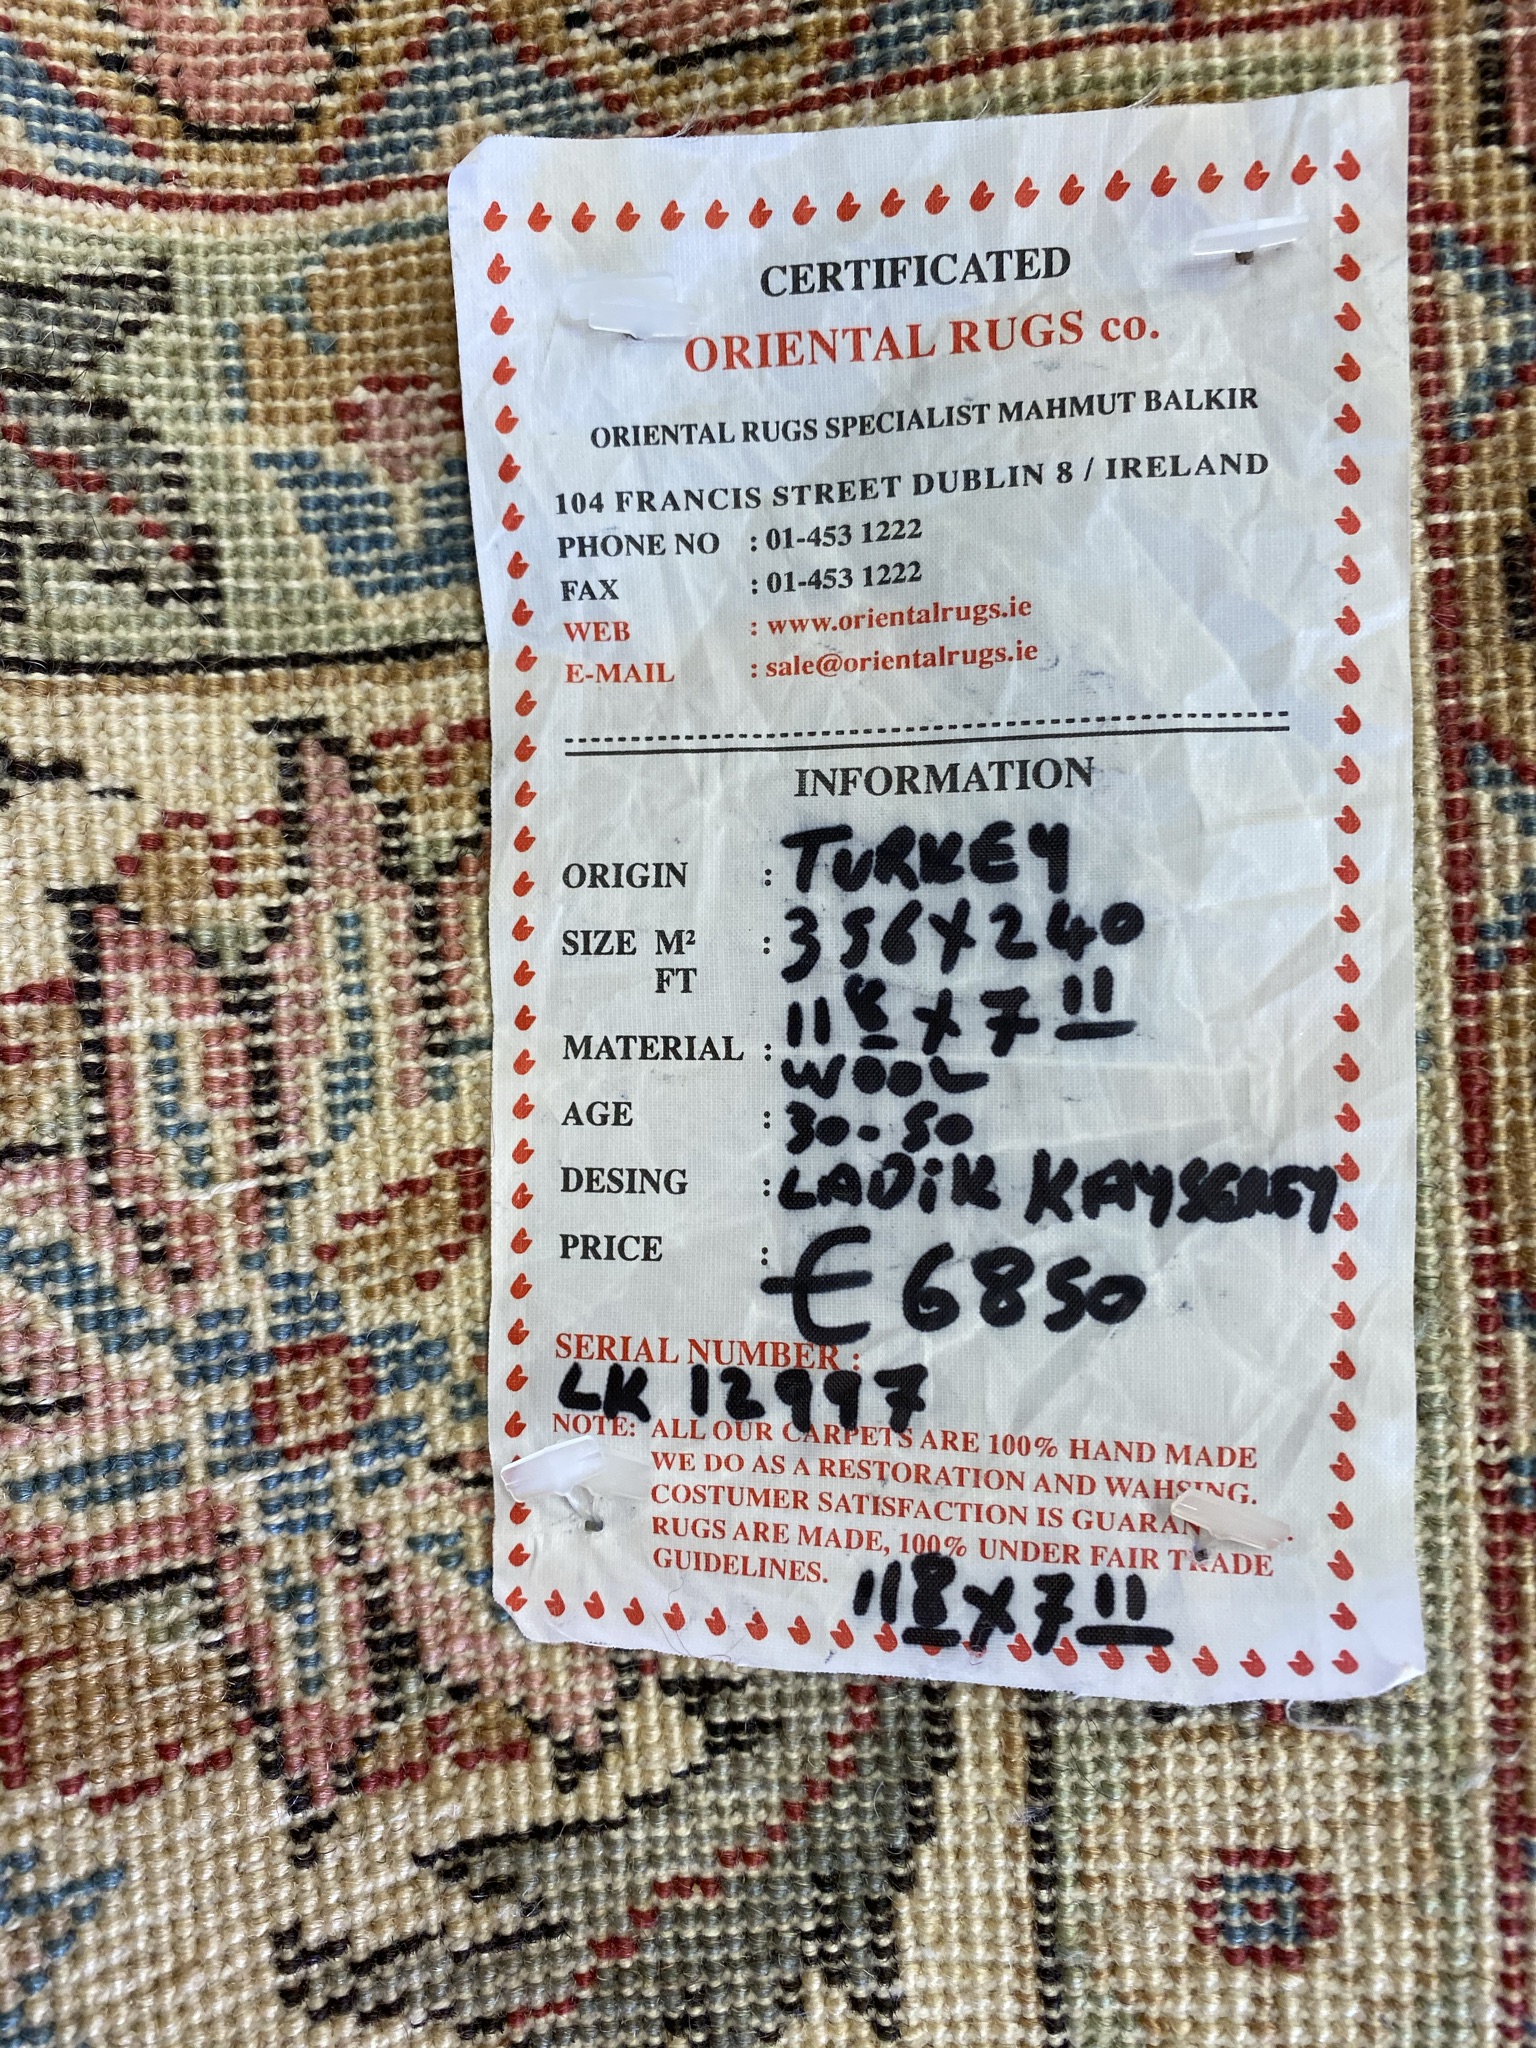 CERTIFICATED
ORIENTAL RUGS co.
ORIENTAL RUGS SPECIALIST MAHMUT BALKIR
104 FRANCIS STREET DUBLIN 8 / IRELAND
PHONE NO : 01-453 1222
FAX : 01-453 1222
WEB : www.orientalrugs.ie
E-MAIL : sale@orientalrugs.ie
INFORMATION
ORIGIN : TURKEY
SIZE M² : 356X240
FT 11 8 X 7 11
MATERIAL : WOOL
AGE : 30-50
DESING : LADiK KAYSEREY
PRICE : € 6850
SERIAL NUMBER :
LK 12997
NOTE: ALL OUR CARPETS ARE 100% HAND MADE
WE DO AS A RESTORATION AND WAHSING.
COSTUMER SATISFACTION IS GUARAN
RUGS ARE MADE, 100% UNDER FAIR TRADE
GUIDELINES.
11 8 X 7 11